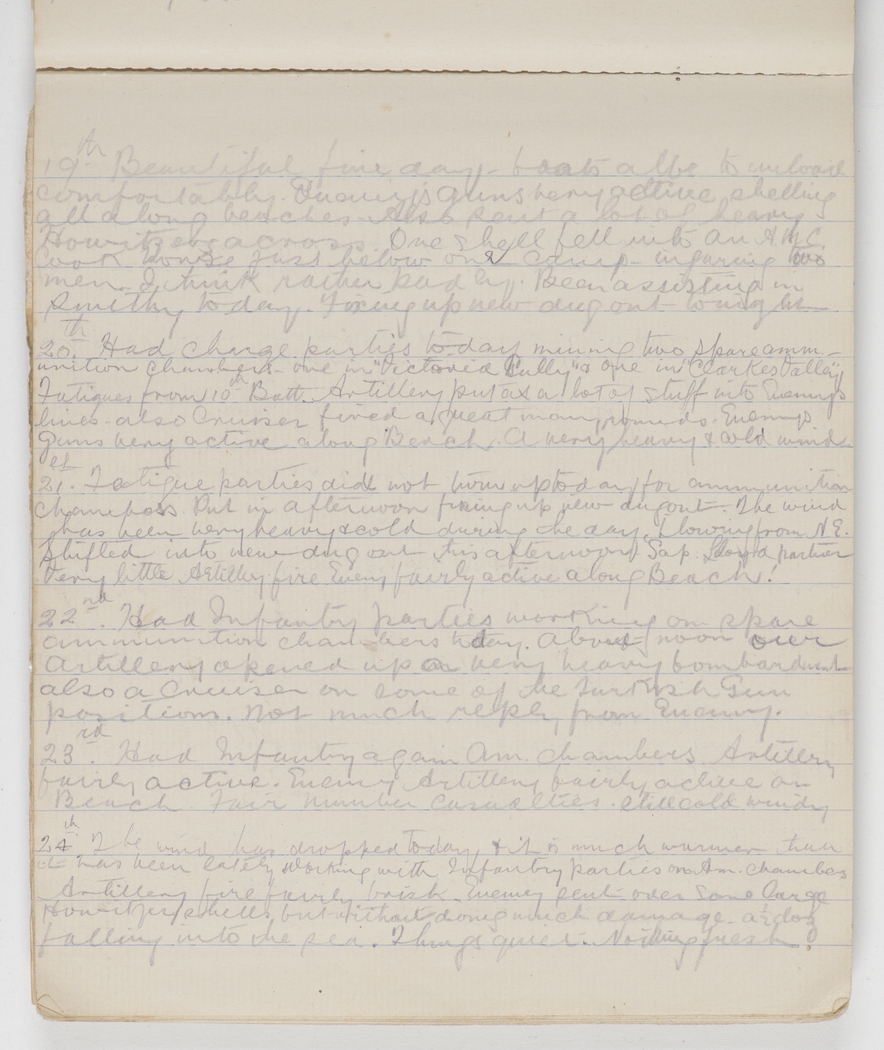 19th. Beautiful fine day - boats able to unload
comfortably. Enemy's guns very active shelling
all along beaches. Also sent a lot of heavy
Howitzers across. One shell fell into an A.M.C.
Cook house just below our camp - injuring two
men I think rather badly. Been assisting in
Smithy today. Fixing up new dug out tonight
20th. Had charge parties to-day mining two spare amm-
unition chambers - one in "Victoria Gully" & one in "Clarkes Valley"
Fatigues from 10th Batt. Artillery put a lot of stuff into Enemy's
lines - also Cruiser fired a great many rounds. Enemy's
guns very active along Beach. A very heavy & cold wind
21st. Fatigue parties did not turn up today for ammunition
chambers. Put in afternoon fixing up new dug out. The wind
has been very heavy & cold during the day, blowing from N.E.
Shifted into new dug out this afternoon, Sap. Lloyd partner
Very little Artillery fire Enemy fairly active along Beach!
22nd. Had Infantry parties working on spare
ammunition chambers today. About noon our
Artillery opened up a very heavy bombardment
also a Cruiser on some of the Turkish Gun
positions. Not much reply from Enemy.
23rd. Had Infantry again Am. chambers. Artillery
fairly active. Enemy Artillery fairly active on
Beach. Fair number casualties. Still cold windy
24th The wind has dropped today, & it is much warmer than
it has been lately. Working with Infantry parties on Am. chambers
Artillery fire fairly brisk. Enemy sent over some large
Howitzer shells, but without doing much damage.
falling into the sea. Things quiet. Nothing fresh!